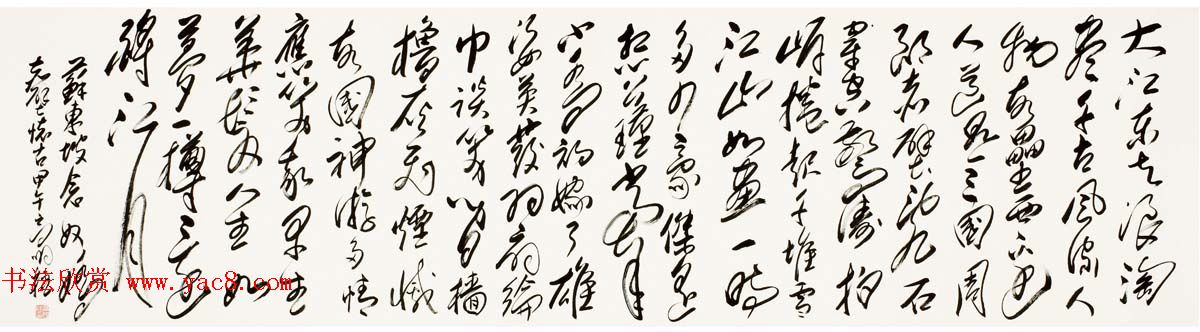 大江东去浪淘
尽千古风流人
物故壘西边
人道是三國周
郎赤壁乱石
穿空惊涛拍
岸捲起千堆雪
江山如畫一時
多少豪傑遥
想公瑾当年
小乔初嫁了雄
姿英发羽扇綸
巾谈笑间檣
櫓灰飞煙滅
故國神游多情
應笑我早生
華发人生如
夢一樽还
酹江月
蘇東坡念奴娇
赤壁懷古甲午
书法欣赏 www.yac8.com